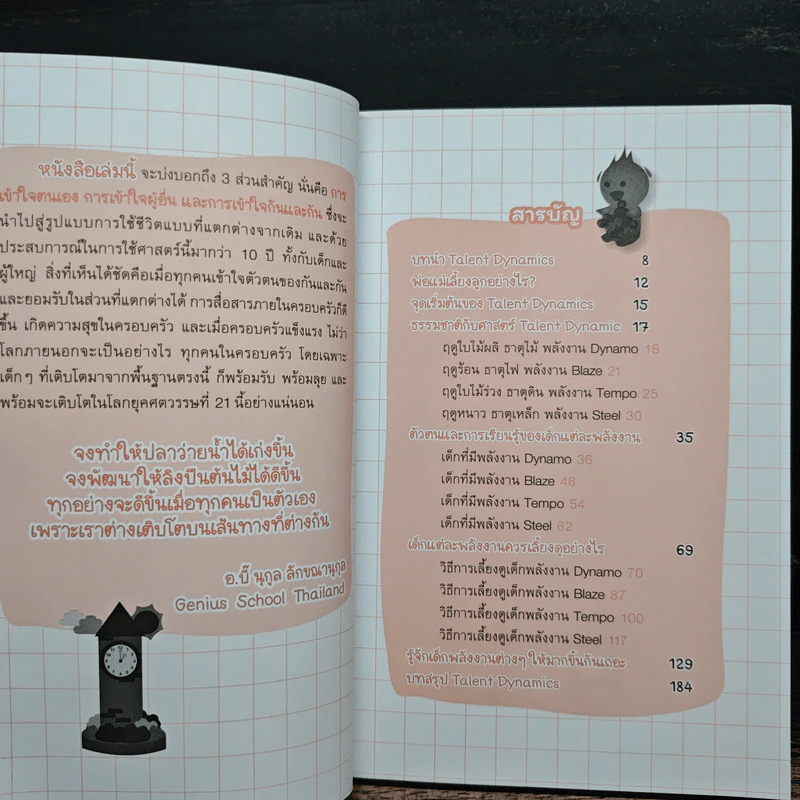 หนังสือเล่มนี้ จะบ่งบอกถึง 3 ส่วนสำคัญ นั่นคือ การ
เข้าใจตนเอง การเข้าใจผู้อื่น และการเข้าใจกันและกัน ซึ่งจะ
นำไปสู่รูปแบบการใช้ชีวิตแบบที่แตกต่างจากเดิม และด้วย
ประสบการณ์ในการใช้ศาสตร์นี้มากว่า 10 ปี ทั้งกับเด็กและ
ผู้ใหญ่ สิ่งที่เห็นได้ชัดคือเมื่อทุกคนเข้าใจตัวตนของกันและกัน
และยอมรับในส่วนที่แตกต่างได้ การสื่อสารภายในครอบครัวก็ดี
ขึ้น เกิดความสุขในครอบครัว และเมื่อครอบครัวแข็งแรง ไม่ว่า
โลกภายนอกจะเป็นอย่างไร ทุกคนในครอบครัว โดยเฉพาะ
เด็กๆ ที่เติบโตมาจากพื้นฐานตรงนี้ ก็พร้อมรับ พร้อมลุย และ
พร้อมจะเติบโตในโลกยุคศตวรรษที่ 21 นี้อย่างแน่นอน
จงทำให้ปลาว่ายน้ำได้เก่งขึ้น
จงพัฒนาให้ลิงปีนต้นไม้ได้ดีขึ้น
ทุกอย่างจะดีขึ้นเมื่อทุกคนเป็นตัวเอง
เพราะเราต่างเติบโตบนเส้นทางที่ต่างกัน
อ.ปั๊ นุกูล ลักขณานุกูล
Genius School Thailand
สารบัญ
บทนำ Talent Dynamics 8
พ่อแม่เลี้ยงลูกอย่างไร? 12
จุดเริ่มต้นของ Talent Dynamics 15
ธรรมชาติกับศาสตร์ Talent Dynamic 17
ฤดูใบไม้ผลิ ธาตุไม้ พลังงาน Dynamo 18
ฤดูร้อน ธาตุไฟ พลังงาน Blaze 21
ฤดูใบไม้ร่วง ธาตุดิน พลังงาน Tempo 25
ฤดูหนาว ธาตุเหล็ก พลังงาน Steel 30
ตัวตนและการเรียนรู้ของเด็กแต่ละพลังงาน 35
เด็กที่มีพลังงาน Dynamo 36
เด็กที่มีพลังงาน Blaze 46
เด็กที่มีพลังงาน Tempo 54
เด็กที่มีพลังงาน Steel 62
เด็กแต่ละพลังงานควรเลี้ยงดูอย่างไร 69
วิธีการเลี้ยงดูเด็กพลังงาน Dynamo 70
วิธีการเลี้ยงดูเด็กพลังงาน Blaze 87
วิธีการเลี้ยงดูเด็กพลังงาน Tempo 100
วิธีการเลี้ยงดูเด็กพลังงาน Steel 117
รู้จักเด็กพลังงานต่างๆ ให้มากขึ้นกันเถอะ 129
บทสรุป Talent Dynamics 184